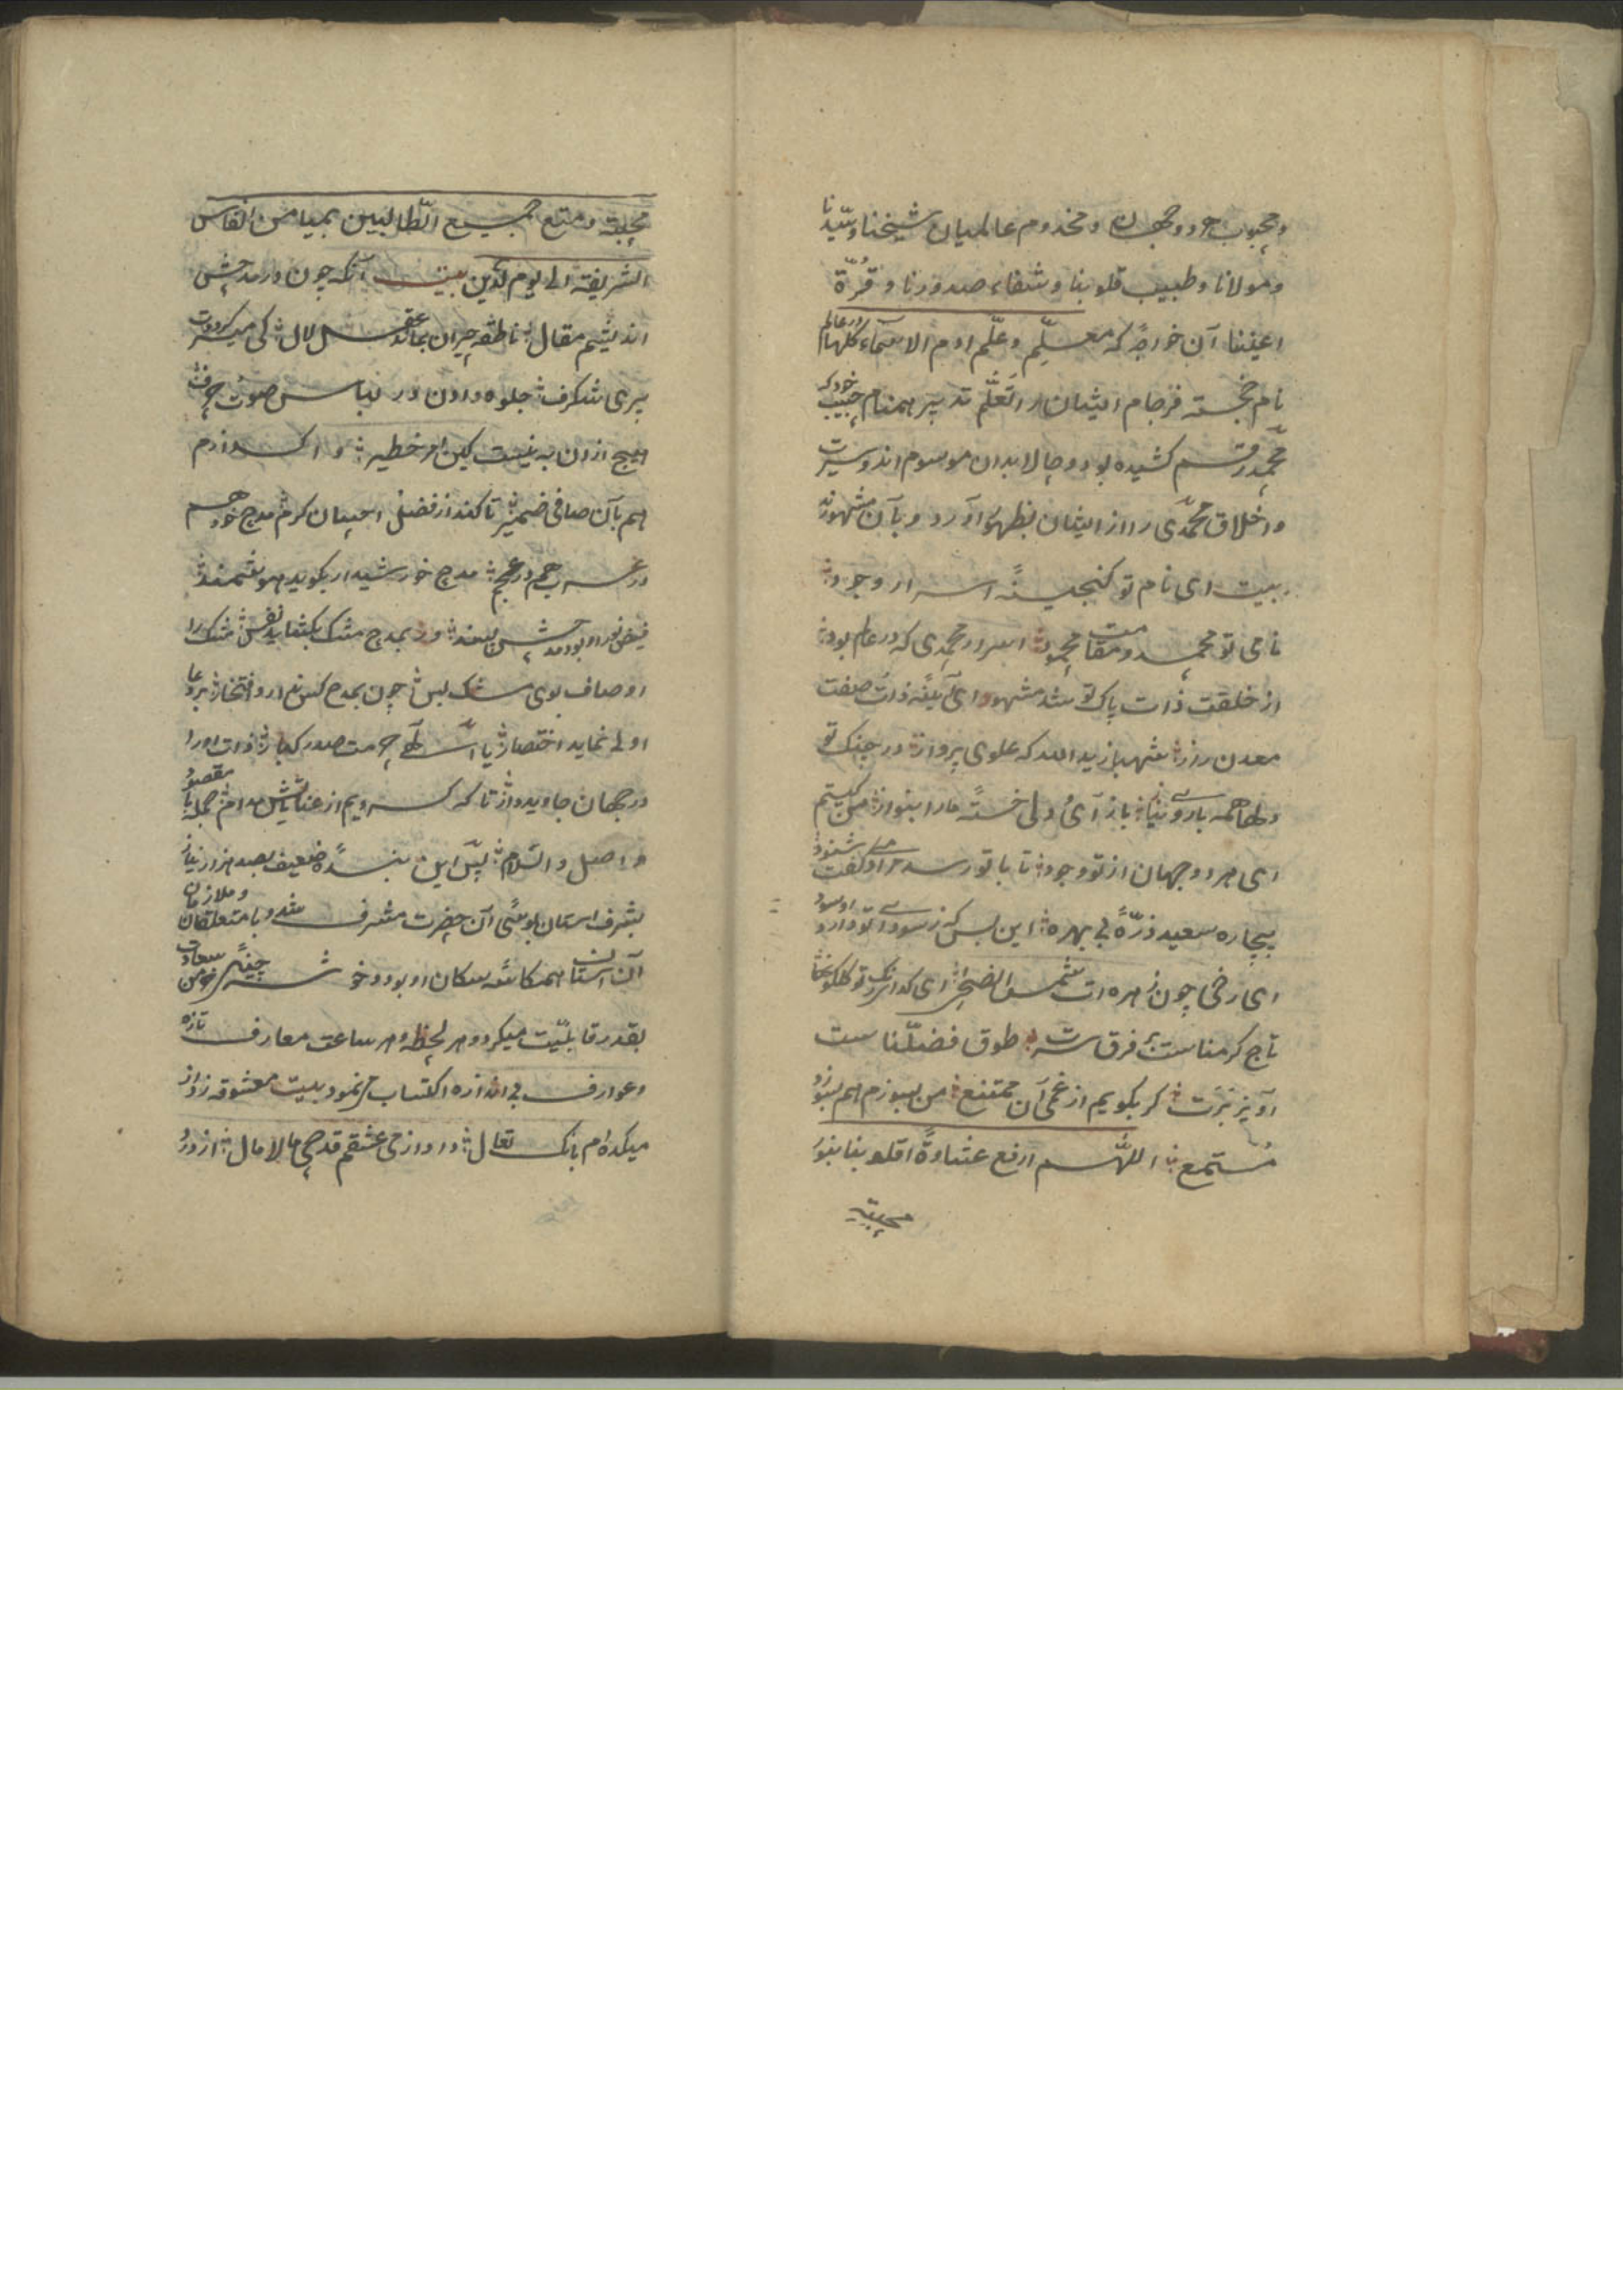 ومحبوب هر دو جهان و مخدوم عالمیان شیخنا وسیّدنا
ومولانا وطبیب قلوبنا وشفاء صدورنا وقُرّة
اعیننا آن خواجهٔ که معلّمِ وعلّم ادم الاسماء کلّها در عالم
نام خجسته فرجام ایشان را تعلّم تدبیر همنام حبیب خود که
محمّد رقم کشیده بود و حالا بدان موسوم اند و سیرت
و اخلاق محمّدی را از ایشان بظهور آورد و بآن مشهورند
بیت ای نام تو گنجینهٔ اسرار وجود
نامی تو محمد و مقامت محمود اسرار محمدی که در عالم بود
از خلقت ذات پاک تو شد مشهود ای آیینهٔ ذات صفت
معدن راز شهباز ید الله که علوی پرواز در چنگ تو
دلها همه بازوی نیاز باز آی دلی خستهٔ ما را بنواز من کیستم
ای هر دو جهان از تو وجود تا با تو رسد مرا گفت شنود
بیچاره سعید ذرّهٔ بی بهره این بس که ز سودای تو دارد او سود
ای رخی چون زهره ات شمس الضحی ای گدا رنگ تو گلگونها
تاج کرمناست بر فرق سرت طوق فضلّنا ست
آویز برت گر بگویم از غمی آن ممتنع من بسوزم هم بسوزد
مستمع اللّهم ارفع غشاوة قلوبنا بنور
محبته
محبته ومتع جمیع الطّالبین بمیامن انفاس
الشریفة الی یوم الدّین بیت آنکه چون در مدحتش
اندیشم مقال ناطقه حیران بماند عقل لال کی میسر گردت
پری شگرف جلوه دادن در لباس صوت حرف
هیچ ازان به نیست کین امر خطیر واگذارم
هم بآن صافی ضمیر تا کند از فضل احسان کرم مدح خود هم
در عرب هم در عجم مدح خورشید ار بگوید هوشمند
فیض نور او بود مدحش پسند ور بمدح مشک بگشاید نفس مشک را
اوصاف بوی مشک بس چون بمدح کس ندارد افتخار بر دعا
اولی نماید اختصار یا الٓهی حرمت صدر کبار ذات او را
در جهان جاوید دار تا که گردیم از عنایاتش مدام جمله با مقصود
واصل والسّلام پس این بندهٔ ضعیف بصد هزار نیاز
بشرف استان بوسی آن حضرت مشرف شد و با متعلقان و ملازمان
آن استان همکاسه سگان او بود و خوشه چینی خرمن سعادت
بقدر قابلیّت میکرد و هر لحظه و هر ساعت معارف تازه
و عوارف بی اندازه اکتساب می نمود بیت معشوقه ز د از
میکده ام بانگ تعال داد از می عشقم قدحی مالامال از دور